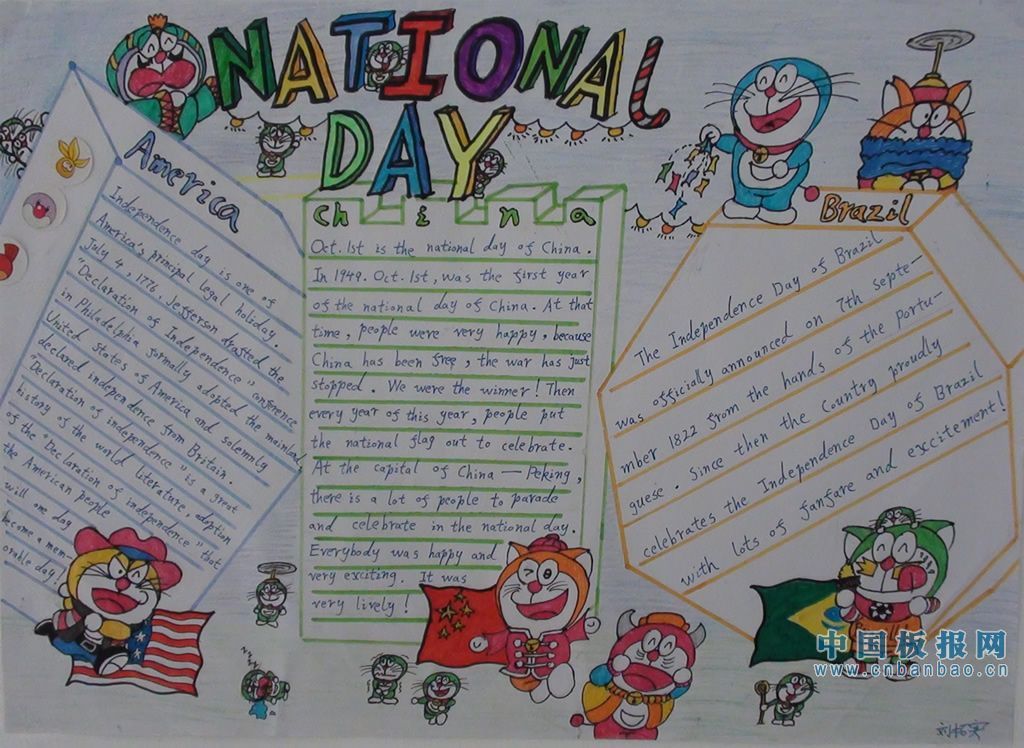 NATIONAL
DAY
America
Independence day is one of
America's principal legal holiday.
July 4, 1776, Jefferson drafted the
"Declaration of Independence" conference
in Philadelphia formally adopted the mainland
United States of America and solemnly
declared independence from Britain.
"Declaration of independence" is a great
history of the world literature, adoption
of the "Declaration of independence" that
the American people
will one day
become a mem-
orable day!
China
Oct. 1st is the national day of China.
In 1949. Oct. 1st, was the first year
of the national day of China. At that
time, people were very happy, because
China has been free, the war has just
stopped. We were the winner! Then
every year of this year, people put
the national flag out to celebrate.
At the capital of China — Peking,
there is a lot of people to parade
and celebrate in the national day.
Everybody was happy and
very exciting. It was
very lively!
Brazil
The Independence Day of Brazil
was officially announced on 7th Septe-
mber 1822 from the hands of the Portu-
guese. Since then the Country proudly
celebrates the Independence Day of Brazil
with lots of fanfare and excitement!
中国板报网
www.cnbanbao.cn